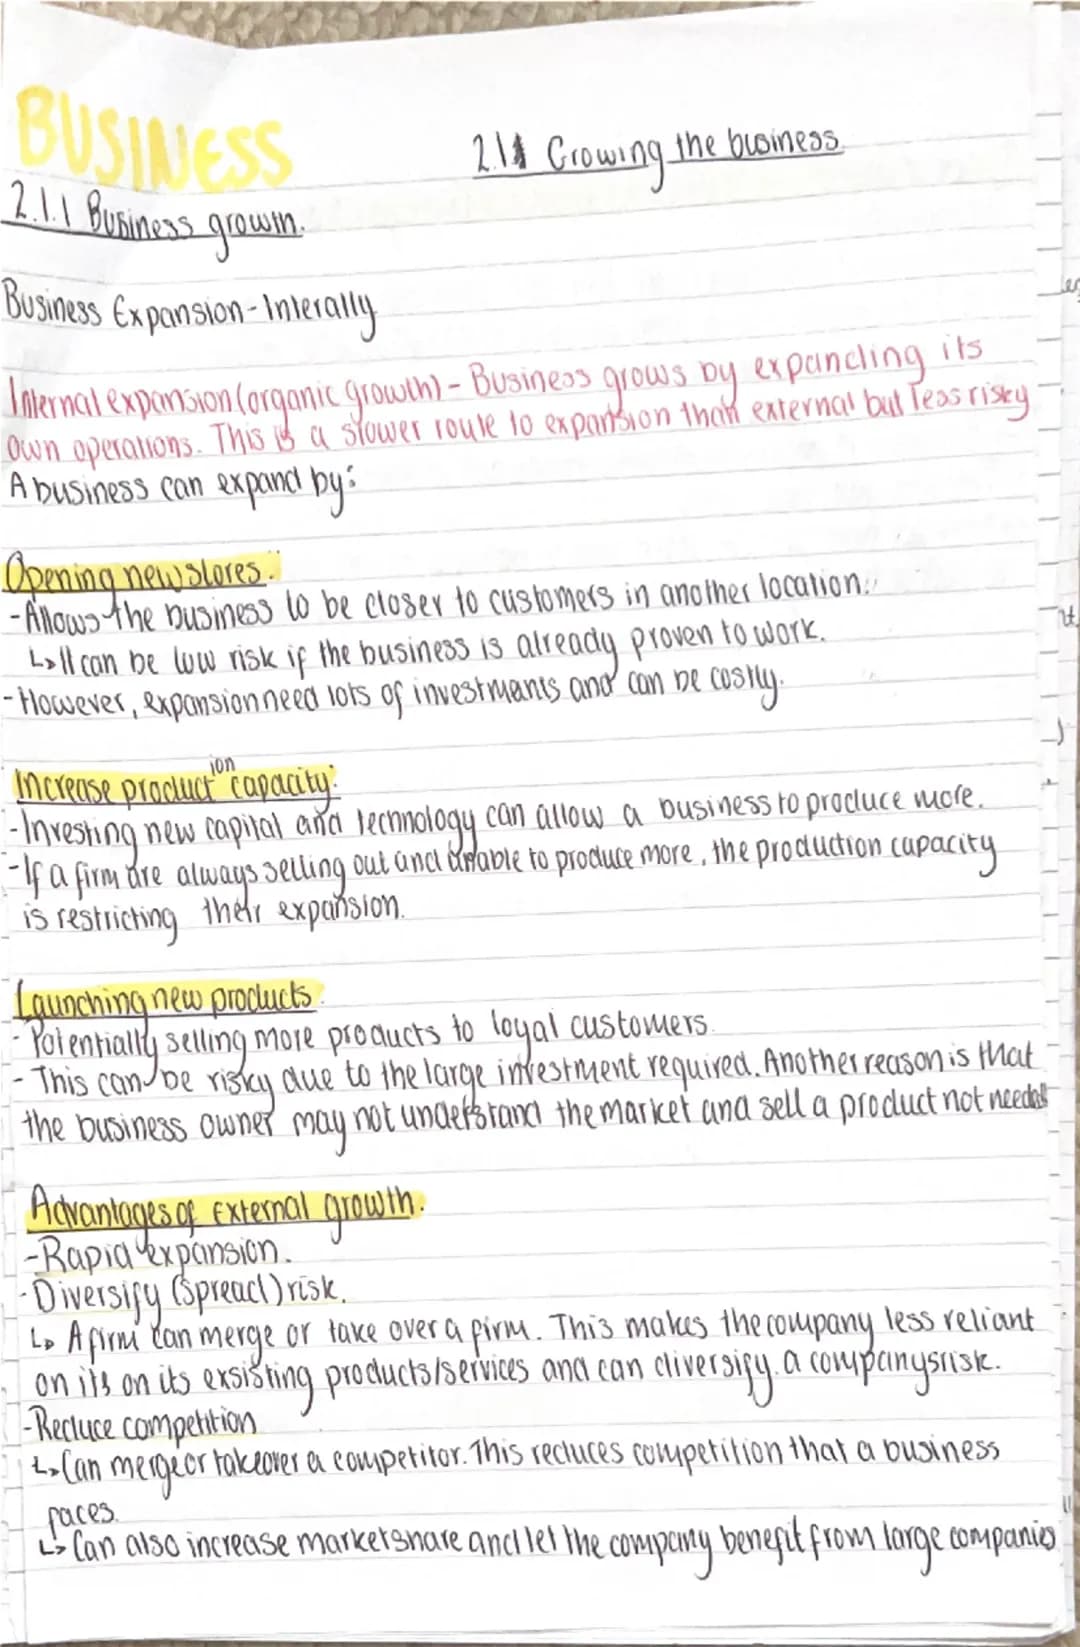 BUSINESS
2.1 Growing the business
2.1.1 Business growth.
Business Expansion - Interally
Internal expansion (organic growth) - Business grows by expanding its
own operations. This is a slower route to expansion than external but less risky
A business can expand by:
Opening new stores:
- Allows the business to be closer to customers in another location.
↳ It can be low risk if the business is already proven to work.
- However, expansion need lots of investments and can be costly.
Increase production capacity:
- Investing new capital and technology can allow a business to produce more.
- If a firm are always selling out and unable to produce more, the production capacity
is restricting their expansion.
Launching new products:
- Potentially selling more products to loyal customers.
- This can be risky due to the large investment required. Another reason is that
the business owner may not understand the market and sell a product not needed
Advantages of external growth.
- Rapid expansion.
- Diversify (spread) risk.
↳ A firm can merge or take over a firm. This makes the company less reliant
on its on its exsisting products/services and can diversify a companys risk.
- Reduce competition
↳ Can merge or takeover a competitor. This reduces competition that a business
faces.
↳ Can also increase marketshare and let the company benefit from large companies